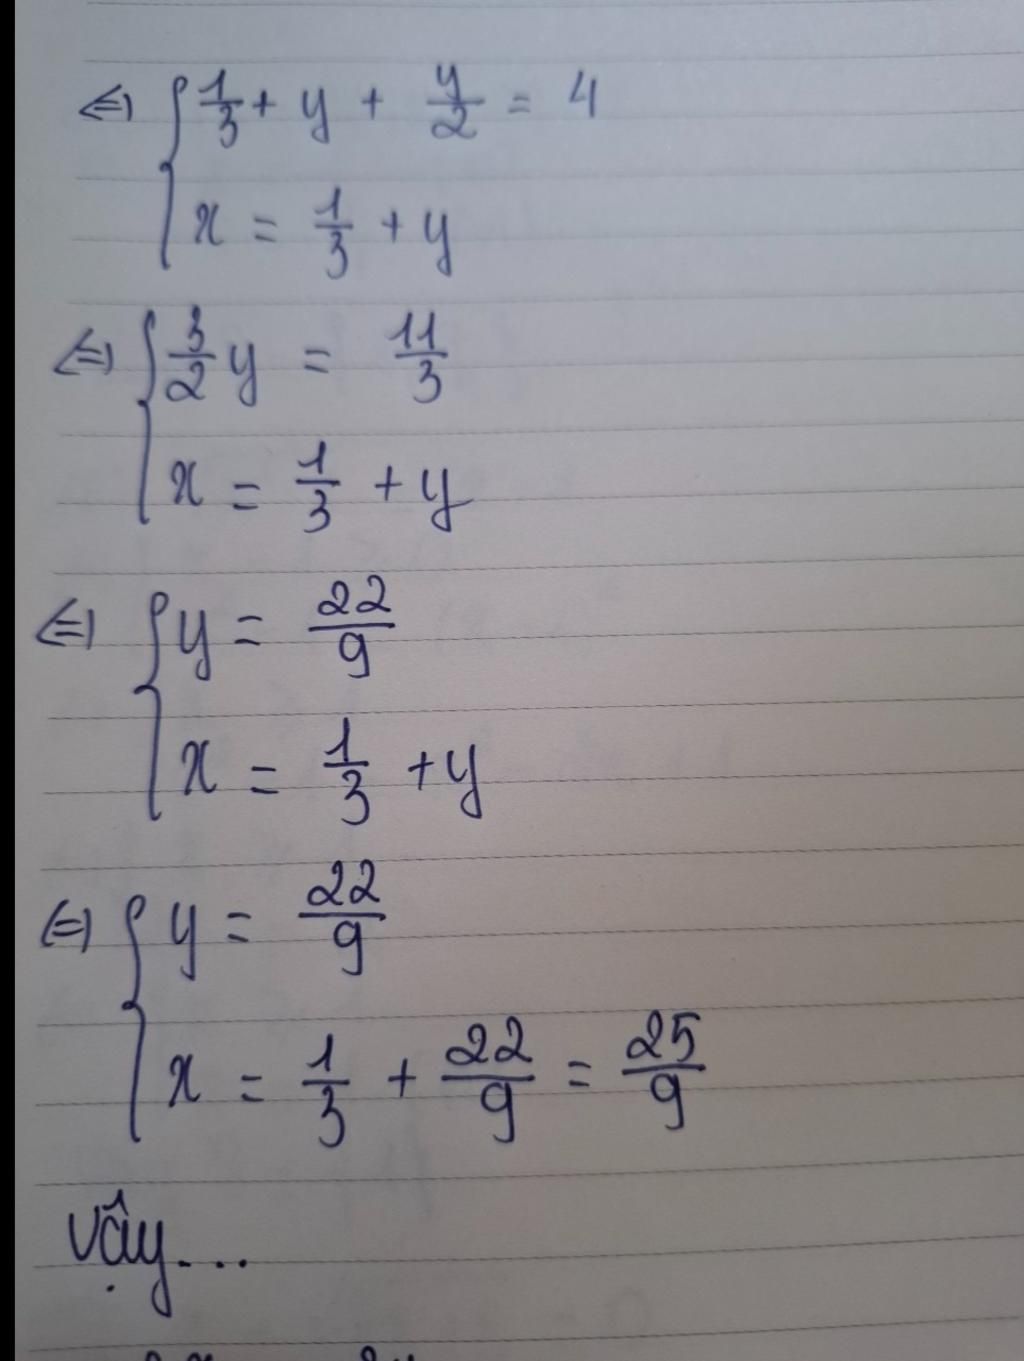 ⇔ { 1/3 + y + y/2 = 4
x = 1/3 + y
⇔ { 3/2 y = 11/3
x = 1/3 + y
⇔ { y = 22/9
x = 1/3 + y
⇔ { y = 22/9
x = 1/3 + 22/9 = 25/9
Vậy...